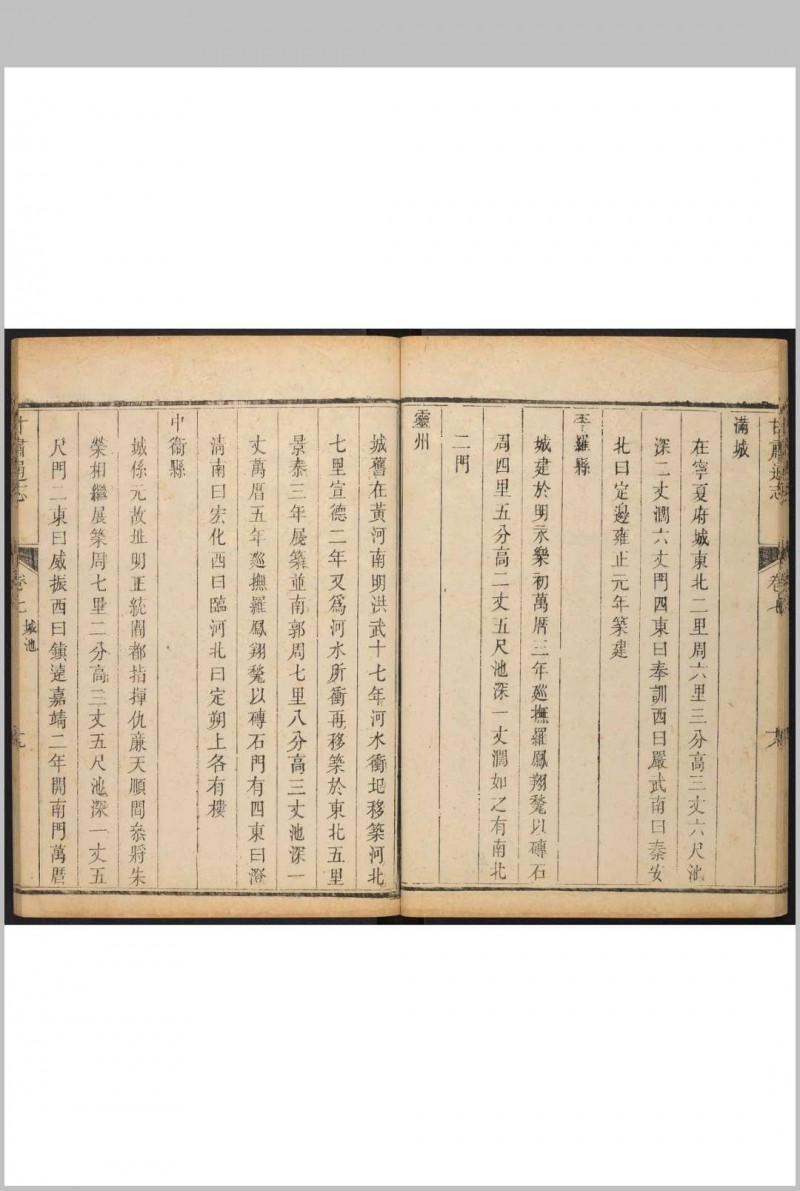 甘肅通志
卷七
滿城
在寧夏府城東北二里周六里三分高三丈六尺池
深二丈濶六丈門四東曰奉訓西曰嚴武南曰秦安
北曰定邊雍正元年築建
平羅縣
城建於明永樂初萬厯三年廵撫羅鳳翔甃以磚石
周四里五分高二丈五尺池深一丈濶如之有南北
二門
靈州
城舊在黃河南明洪武十七年河水衝圯移築河北
七里宣德二年又爲河水所衝再移築於東北五里
景泰三年展築並南郭周七里八分高三丈池深一
丈萬厯五年廵撫羅鳳翔甃以磚石門有四東曰澄
清南曰宏化西曰臨河北曰定朔上各有樓
中衛縣
城係元故址明正統間都指揮仇廉天順間叅將朱
榮相繼展築周七里二分高三丈五尺池深一丈五
尺門二東曰威振西曰鎮遠嘉靖二年開南門萬厯
甘肅通志
卷七 城池